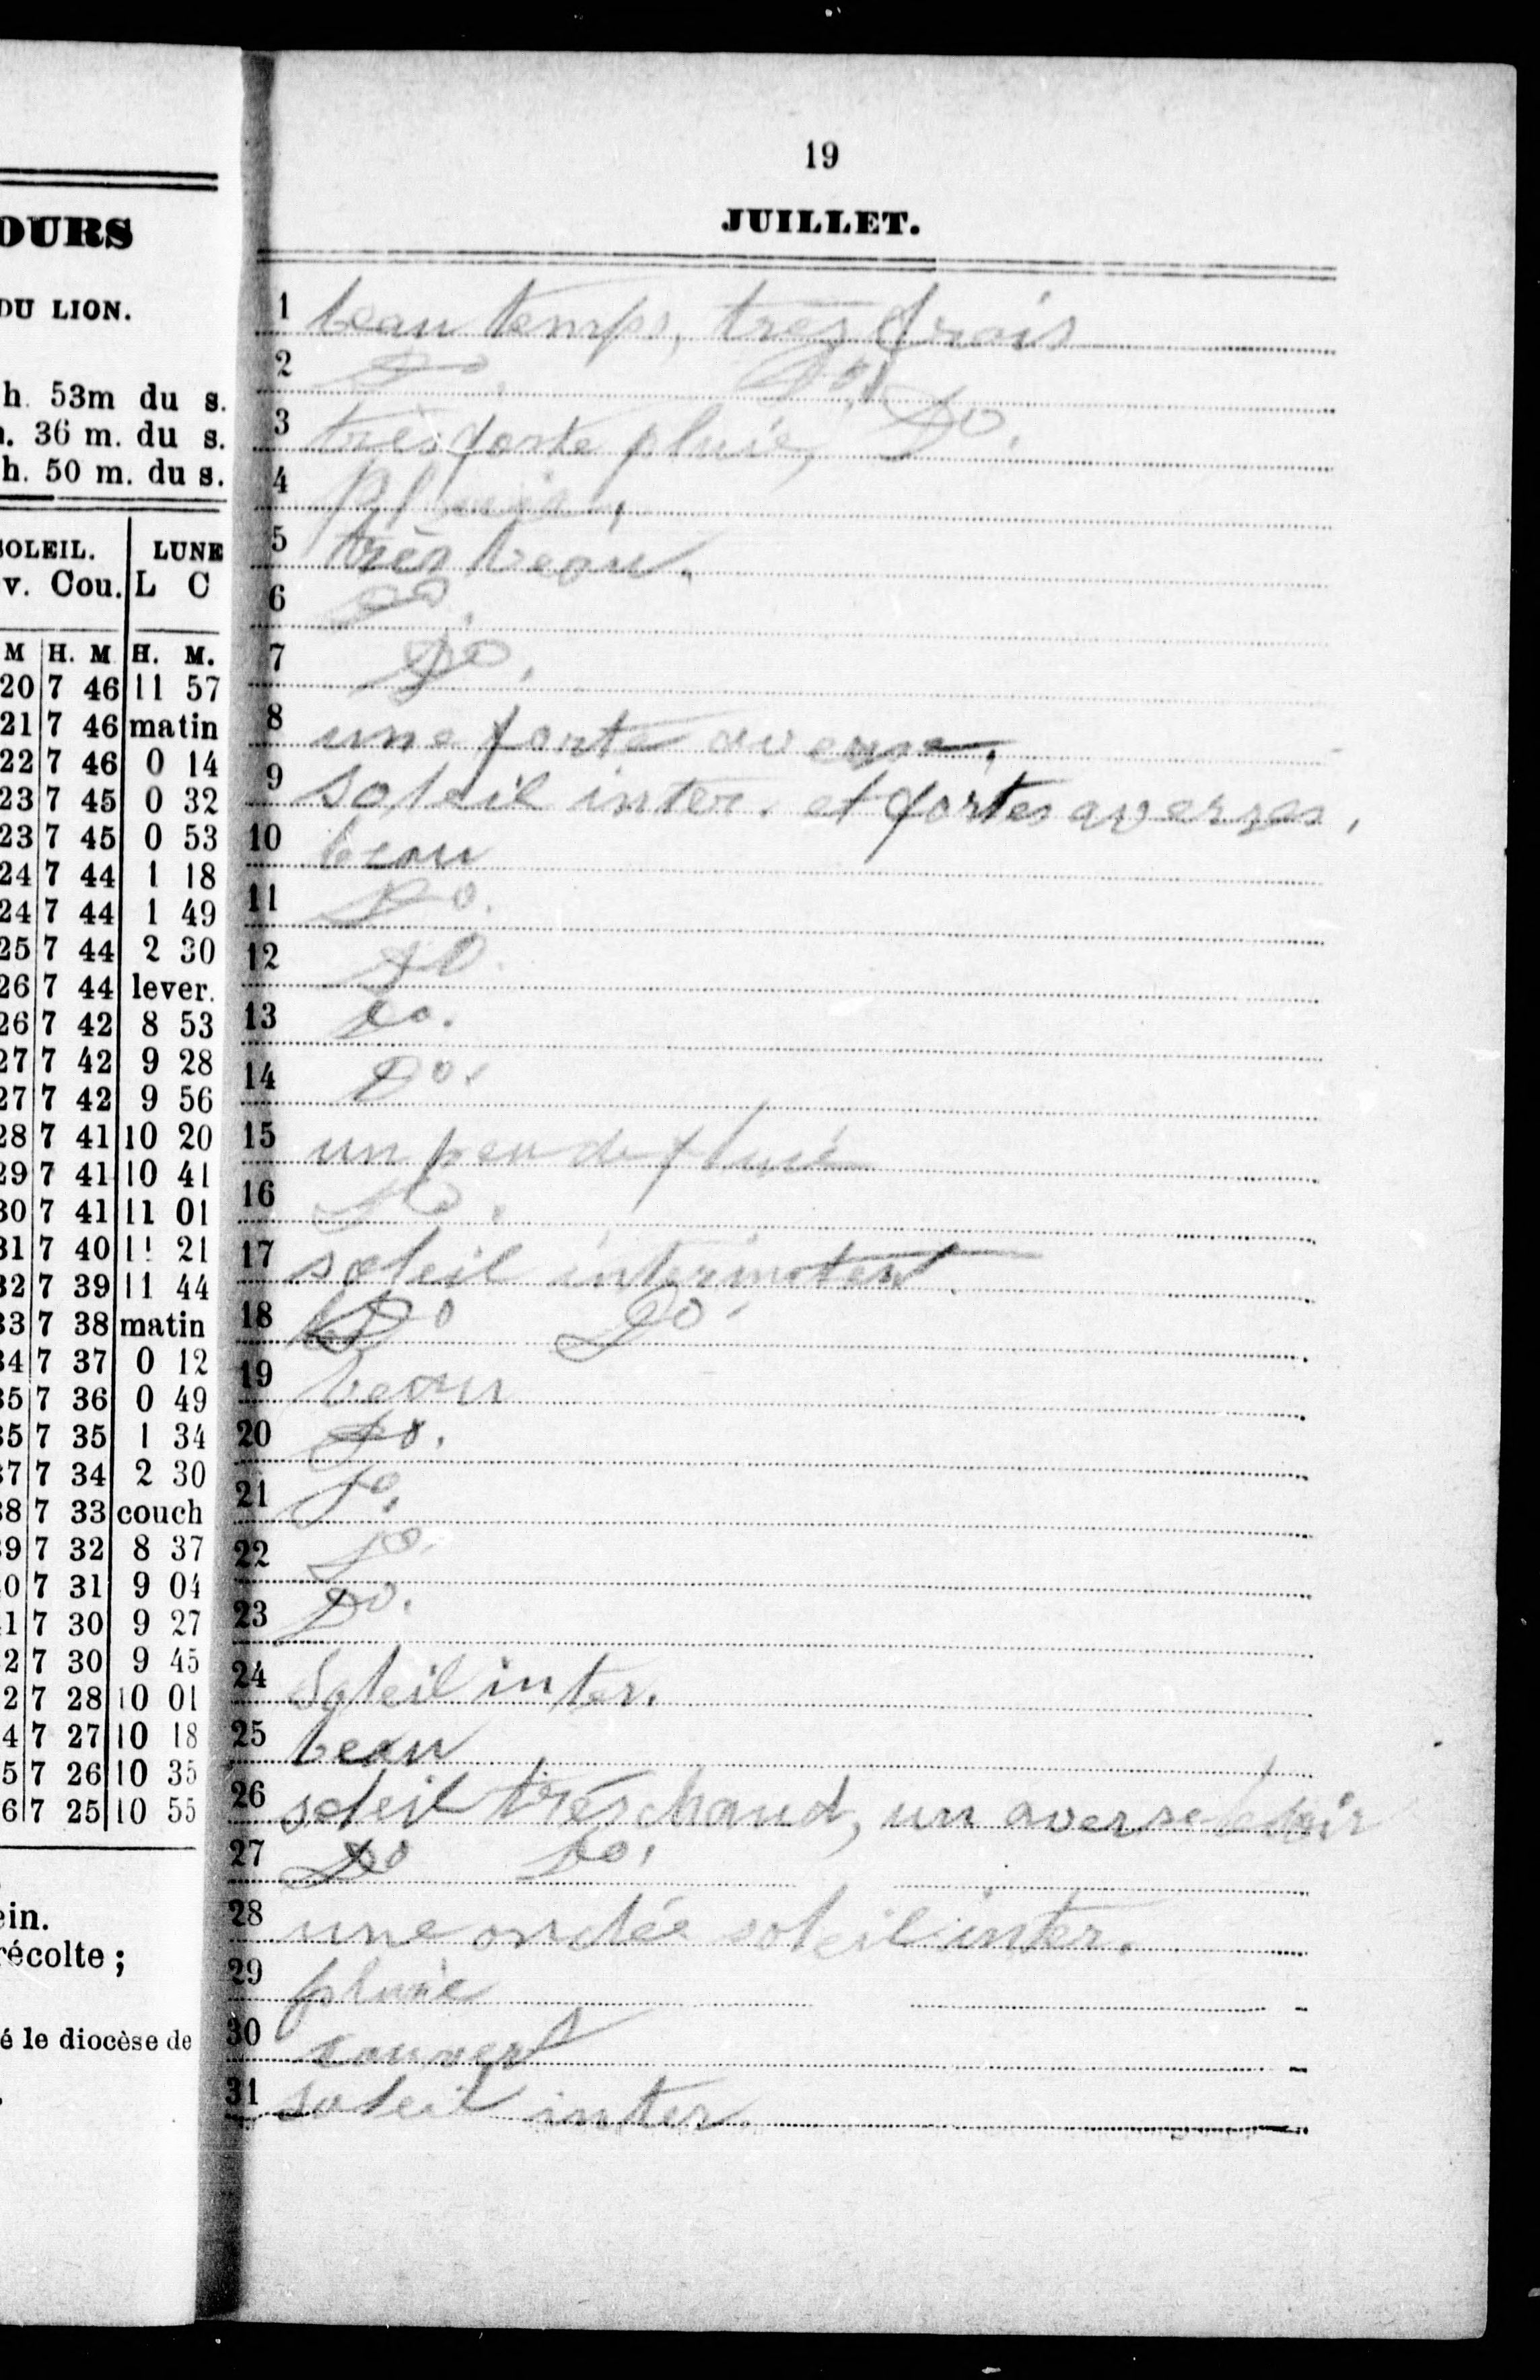 OURS
DU LION.
h. 53m du s.
36 m. du s.
h. 50 m. du s.
SOLEIL. LUNE
v. Cou. L C
M H. M H. M.
20 7 46 11 57
21 7 46 matin
22 7 46 0 14
23 7 45 0 32
23 7 45 0 53
24 7 44 1 18
24 7 44 1 49
25 7 44 2 30
26 7 44 lever.
26 7 42 8 53
27 7 42 9 28
27 7 42 9 56
28 7 41 10 20
29 7 41 10 41
30 7 41 11 01
31 7 40 11 21
32 7 39 11 44
33 7 38 matin
34 7 37 0 12
35 7 36 0 49
35 7 35 1 34
37 7 34 2 30
38 7 33 couch
39 7 32 8 37
0 7 31 9 04
1 7 30 9 27
2 7 30 9 45
2 7 28 10 01
4 7 27 10 18
5 7 26 10 35
6 7 25 10 55
ein.
récolte ;
é le diocèse de
19
JUILLET.
1 beau temps, très frais
2 Do. Do.
3 très forte pluie, Do.
4 Pluie,
5 très beau.
6 Do.
7 Do.
8 une forte averse.
9 soleil inter. et fortes averses,
10 beau
11 Do.
12 Do.
13 Do.
14 Do.
15 un peu de pluie
16 Do.
17 soleil intermitent
18 Do Do.
19 beau
20 Do.
21 Do.
22 Do.
23 Do.
24 Soleil inter.
25 beau
26 soleil très chaud, un averse le soir
27 Do Do.
28 une ondée soleil inter.
29 pluie
30 couvert
31 soleil inter.